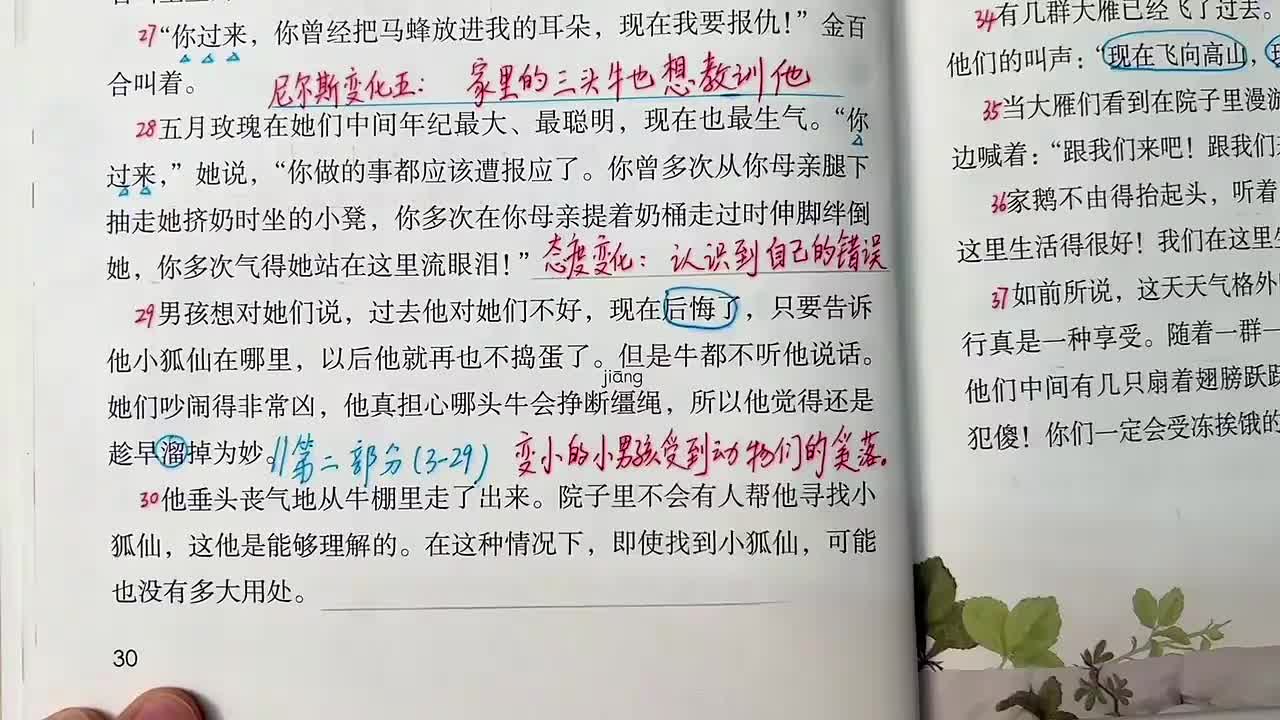 27“你过来，你曾经把马蜂放进我的耳朵，现在我要报仇！”金百
合叫着。
尼尔斯变化五：家里的三头牛也想教训他
28五月玫瑰在她们中间年纪最大、最聪明，现在也最生气。“你
过来，”她说，“你做的事都应该遭报应了。你曾多次从你母亲腿下
抽走她挤奶时坐的小凳，你多次在你母亲提着奶桶走过时伸脚绊倒
她，你多次气得她站在这里流眼泪！”
态度变化：认识到自己的错误
29男孩想对她们说，过去他对她们不好，现在后悔了，只要告诉
他小狐仙在哪里，以后他就再也不捣蛋了。但是牛都不听他说话。
jiāng
她们吵闹得非常凶，他真担心哪头牛会挣断缰绳，所以他觉得还是
趁早溜掉为妙。
//第二部分(3-29) 变小的小男孩受到动物们的奚落。
30他垂头丧气地从牛棚里走了出来。院子里不会有人帮他寻找小
狐仙，这他是能够理解的。在这种情况下，即使找到小狐仙，可能
也没有多大用处。
30
34有几群大雁已经飞了过去。
他们的叫声：“现在飞向高山，
35当大雁们看到在院子里漫游
边喊着：“跟我们来吧！跟我们
36家鹅不由得抬起头，听着
这里生活得很好！我们在这里
37如前所说，这天天气格外
行真是一种享受。随着一群一
他们中间有几只扇着翅膀跃跃
犯傻！你们一定会受冻挨饿的